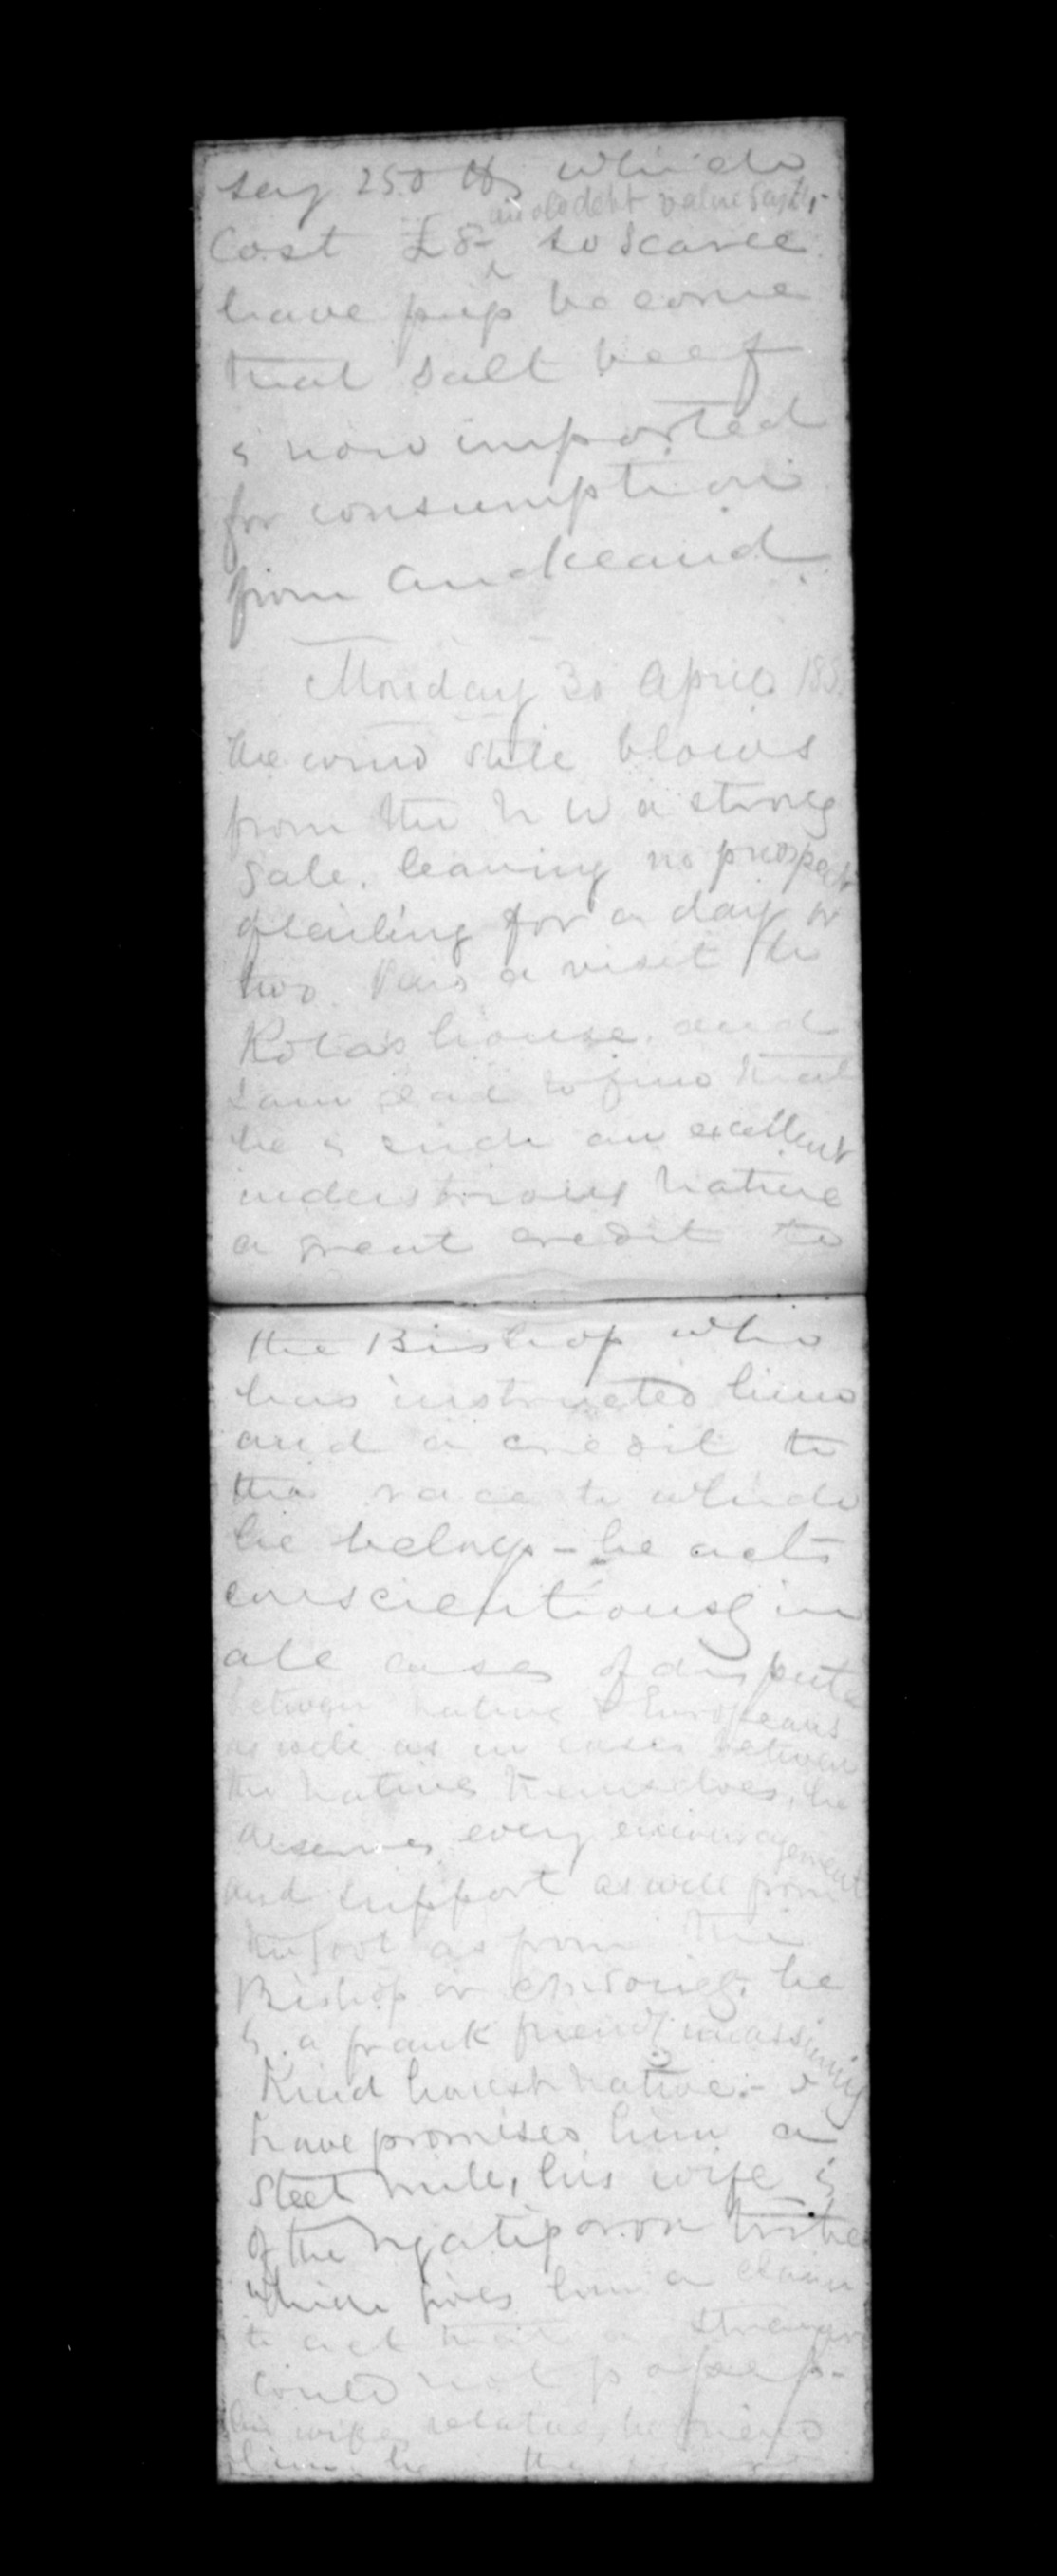 say 250 lbs which
an old debt value say
Cost £8- so scarce
have pigs become
that salt beef
is now imported
for consumption
from Auckland.
Monday 30 April 185
the wind still blows
from the N W a strong
gale. leaving no prospect
of sailing for a day or
two. Paid a visit to
Kota's house. and
I am glad to find that
he is such an excellent
industrious native
a great credit to
the Bishop who
has instructed him
and a credit to
the race to which
he belongs - he acts
conscientiously in
all cases of dispute
between native & Europeans
as well as in cases between
the natives themselves, he
deserves every encouragement
and support as well from
the Govt as from the
Bishop or he
is a frank friendly unassuming
Kind honest native. - I
have promised him a
steel mill, his wife is
of the Ngatiporou tribe
which gives him a claim
to act that a stranger
could not possess -
his wife's relatives
him he the